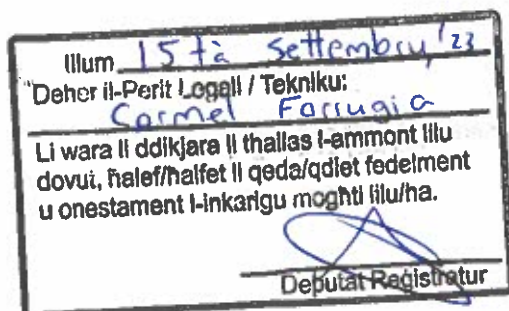 Illum 15 ta Settembru '23
Deher il-Perit Legali / Tekniku:
Carmel Farrugia
Li wara li ddikjara li thallas l-ammont lilu
dovut, ħalef/ħalfet li qeda/qdiet fedelment
u onestament l-inkarigu mogħti lilu/ha.
Deputat Reġistratur